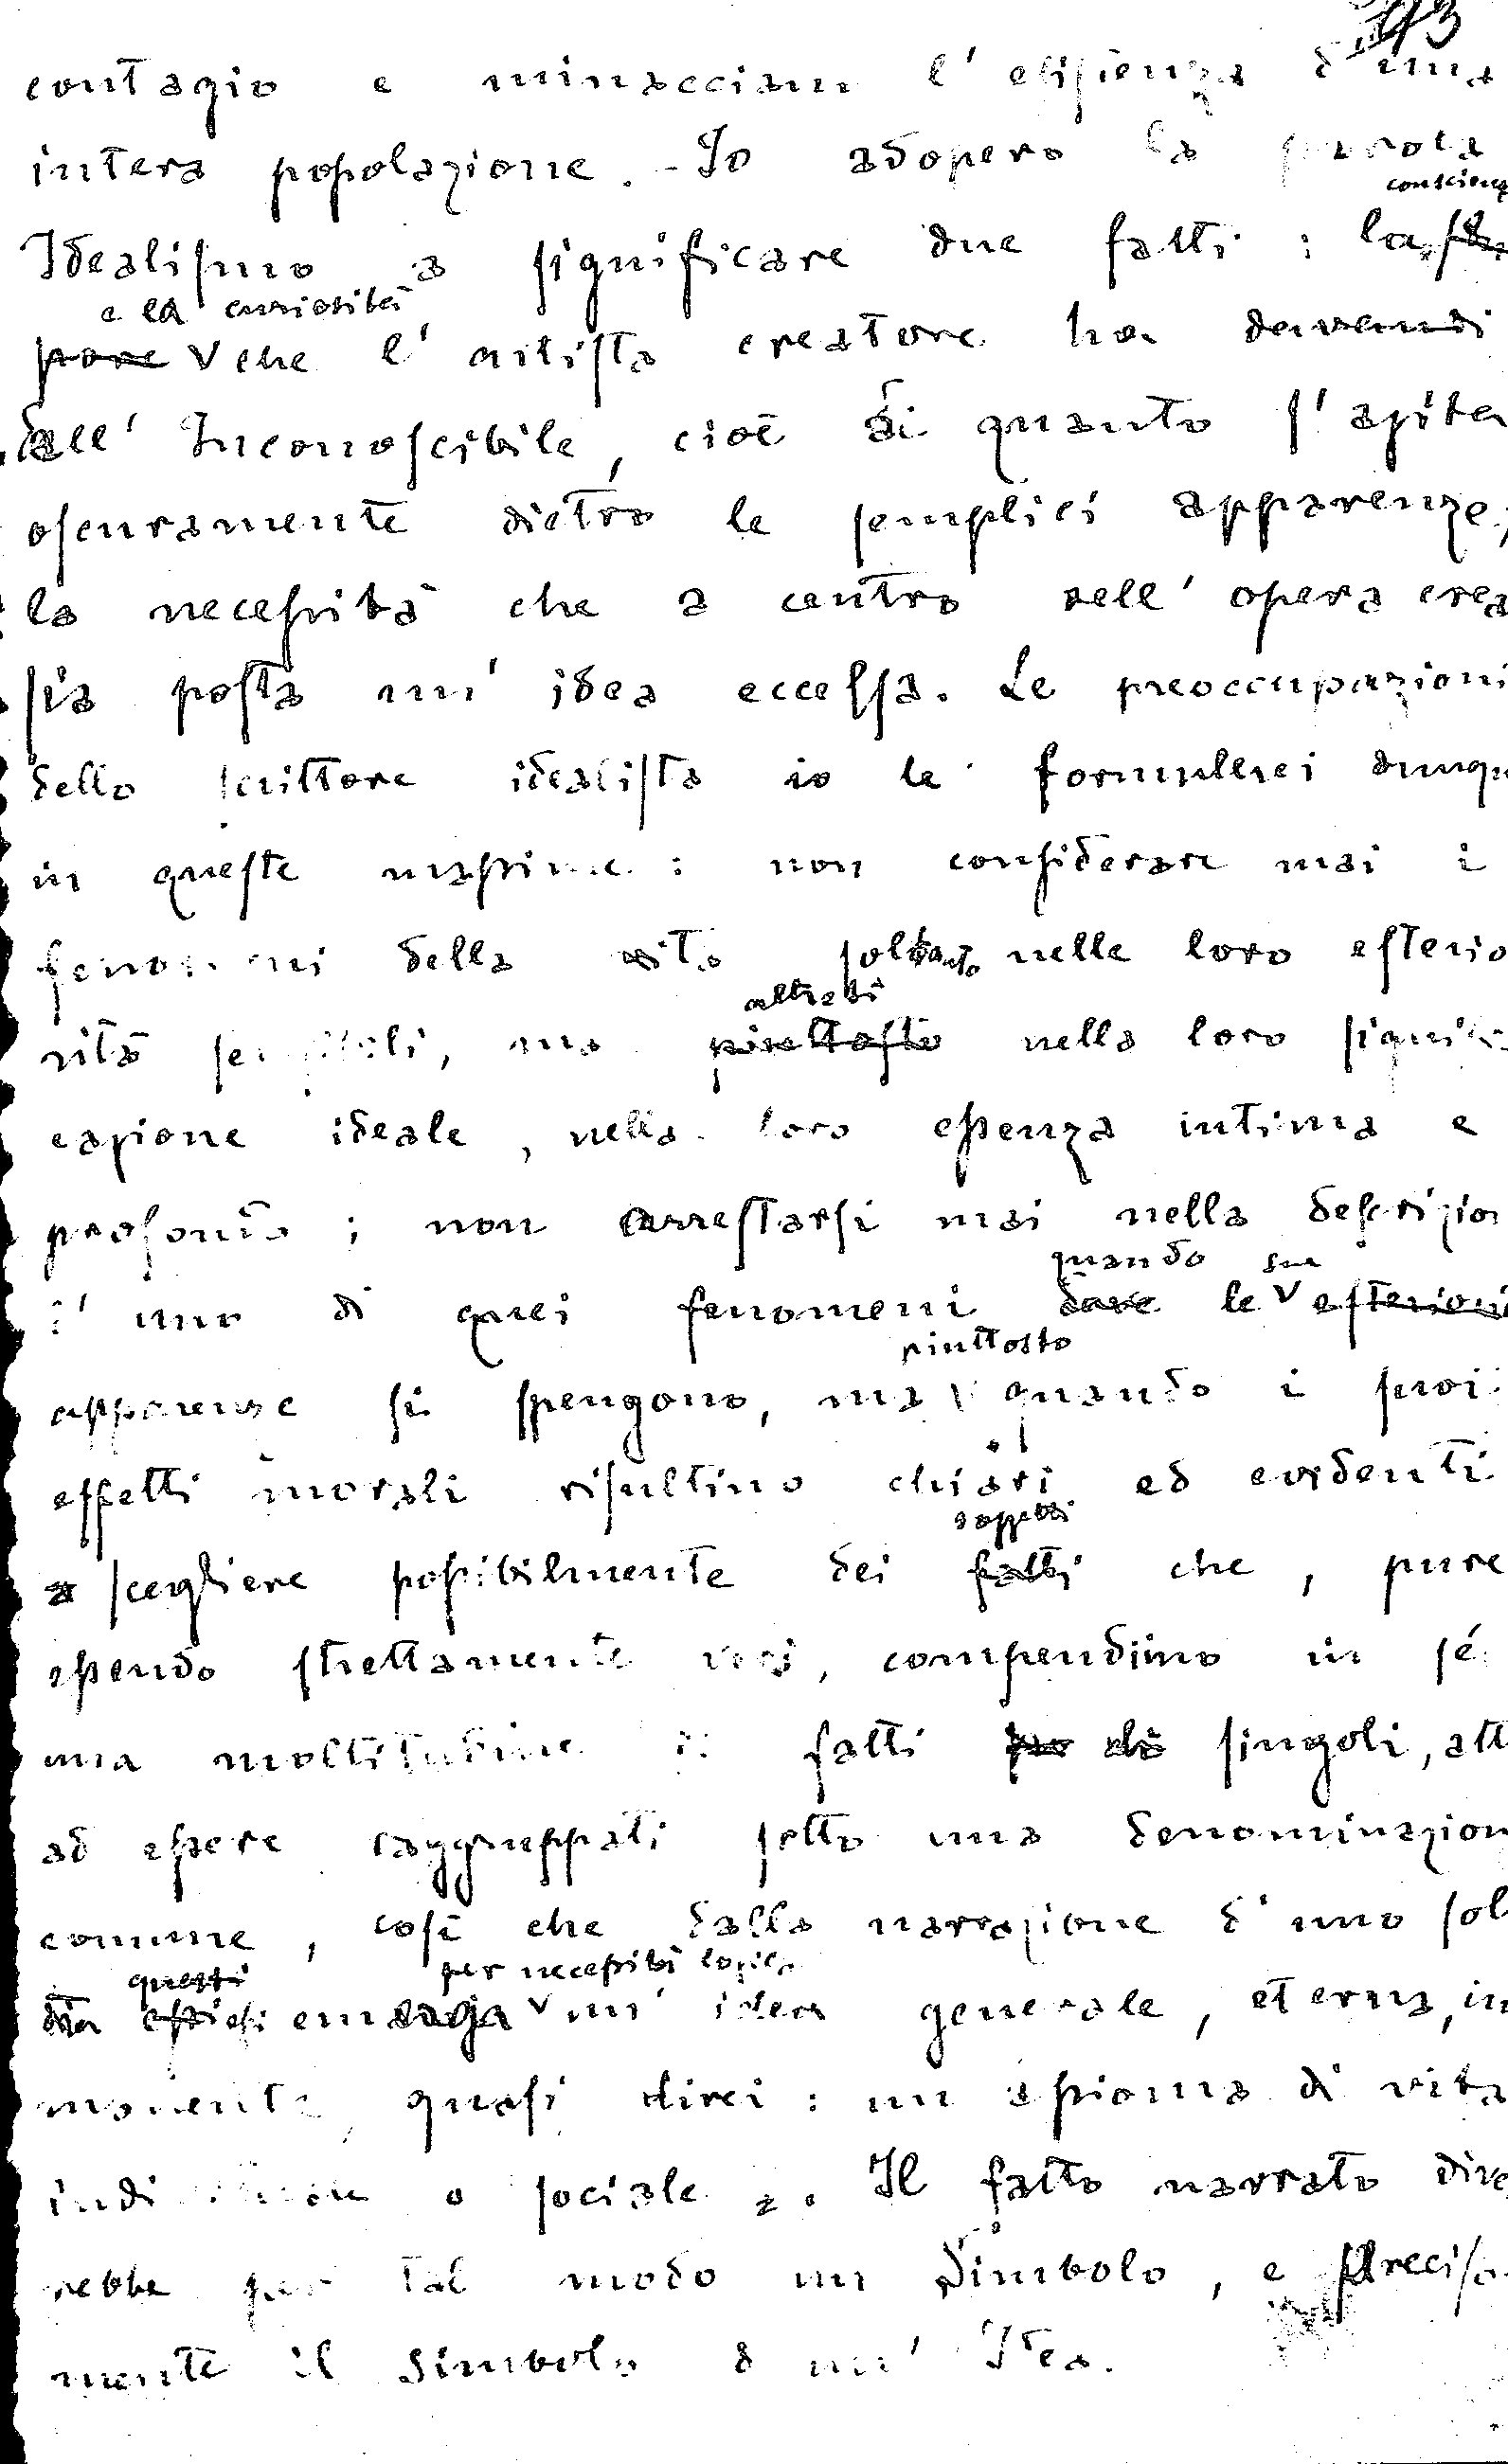 93
contagio e minacciam l'esistenza d'una
intera popolazione. - Io adopero la parola
conscienz
Idealismo a significare due fatti : la
e la curiosità
pare che l'artista creatore ha davanti
all' Inconoscibile, cioè di quanto s'agita
oscuramente dietro le semplici apparenze,
la necessità che a centro dell'opera crea
sia posta un'idea eccelsa. Le preoccupazioni
dello scrittore idealista io le formulerei dunqu
in queste massime : non considerare mai i
fenomeni della vita soltanto nelle loro esterio
altresì
rità sensibili, ma piuttosto nella loro signifi
cazione ideale, nella loro essenza intima e
profonda ; non arrestarsi mai nella descrizion
quando sue
d'uno di quei fenomeni dove le esteriori
piuttosto
apparenze si spengono, ma quando i suoi
effetti morali risultino chiari ed evidenti
soggetti
a scegliere possibilmente dei fatti che, pure
essendo strettamente veri, compendino in sé
una moltitudine di fatti singoli, att
ad essere raggruppati sotto una denominazion
comune, così che dalla narrazione d'uno sol
questi per necessità logica
emerga un'idea generale, eterna, in
movente, quasi direi : un assioma di vita
individuale o sociale. Il fatto narrato dive
rebbe per tal modo un Simbolo, e precisa
mente il Simbolo d'un' Idea.